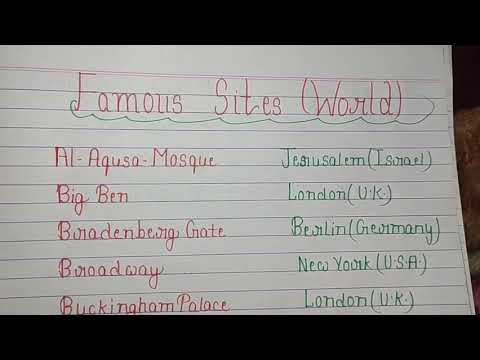 Famous Sites (World)
Al-Aqusa-Mosque Jerusalem (Israel)
Big Ben London (U.K.)
Bradenberg Gate Berlin (Germany)
Broadway New York (U.S.A.)
Buckingham Palace London (U.K.)